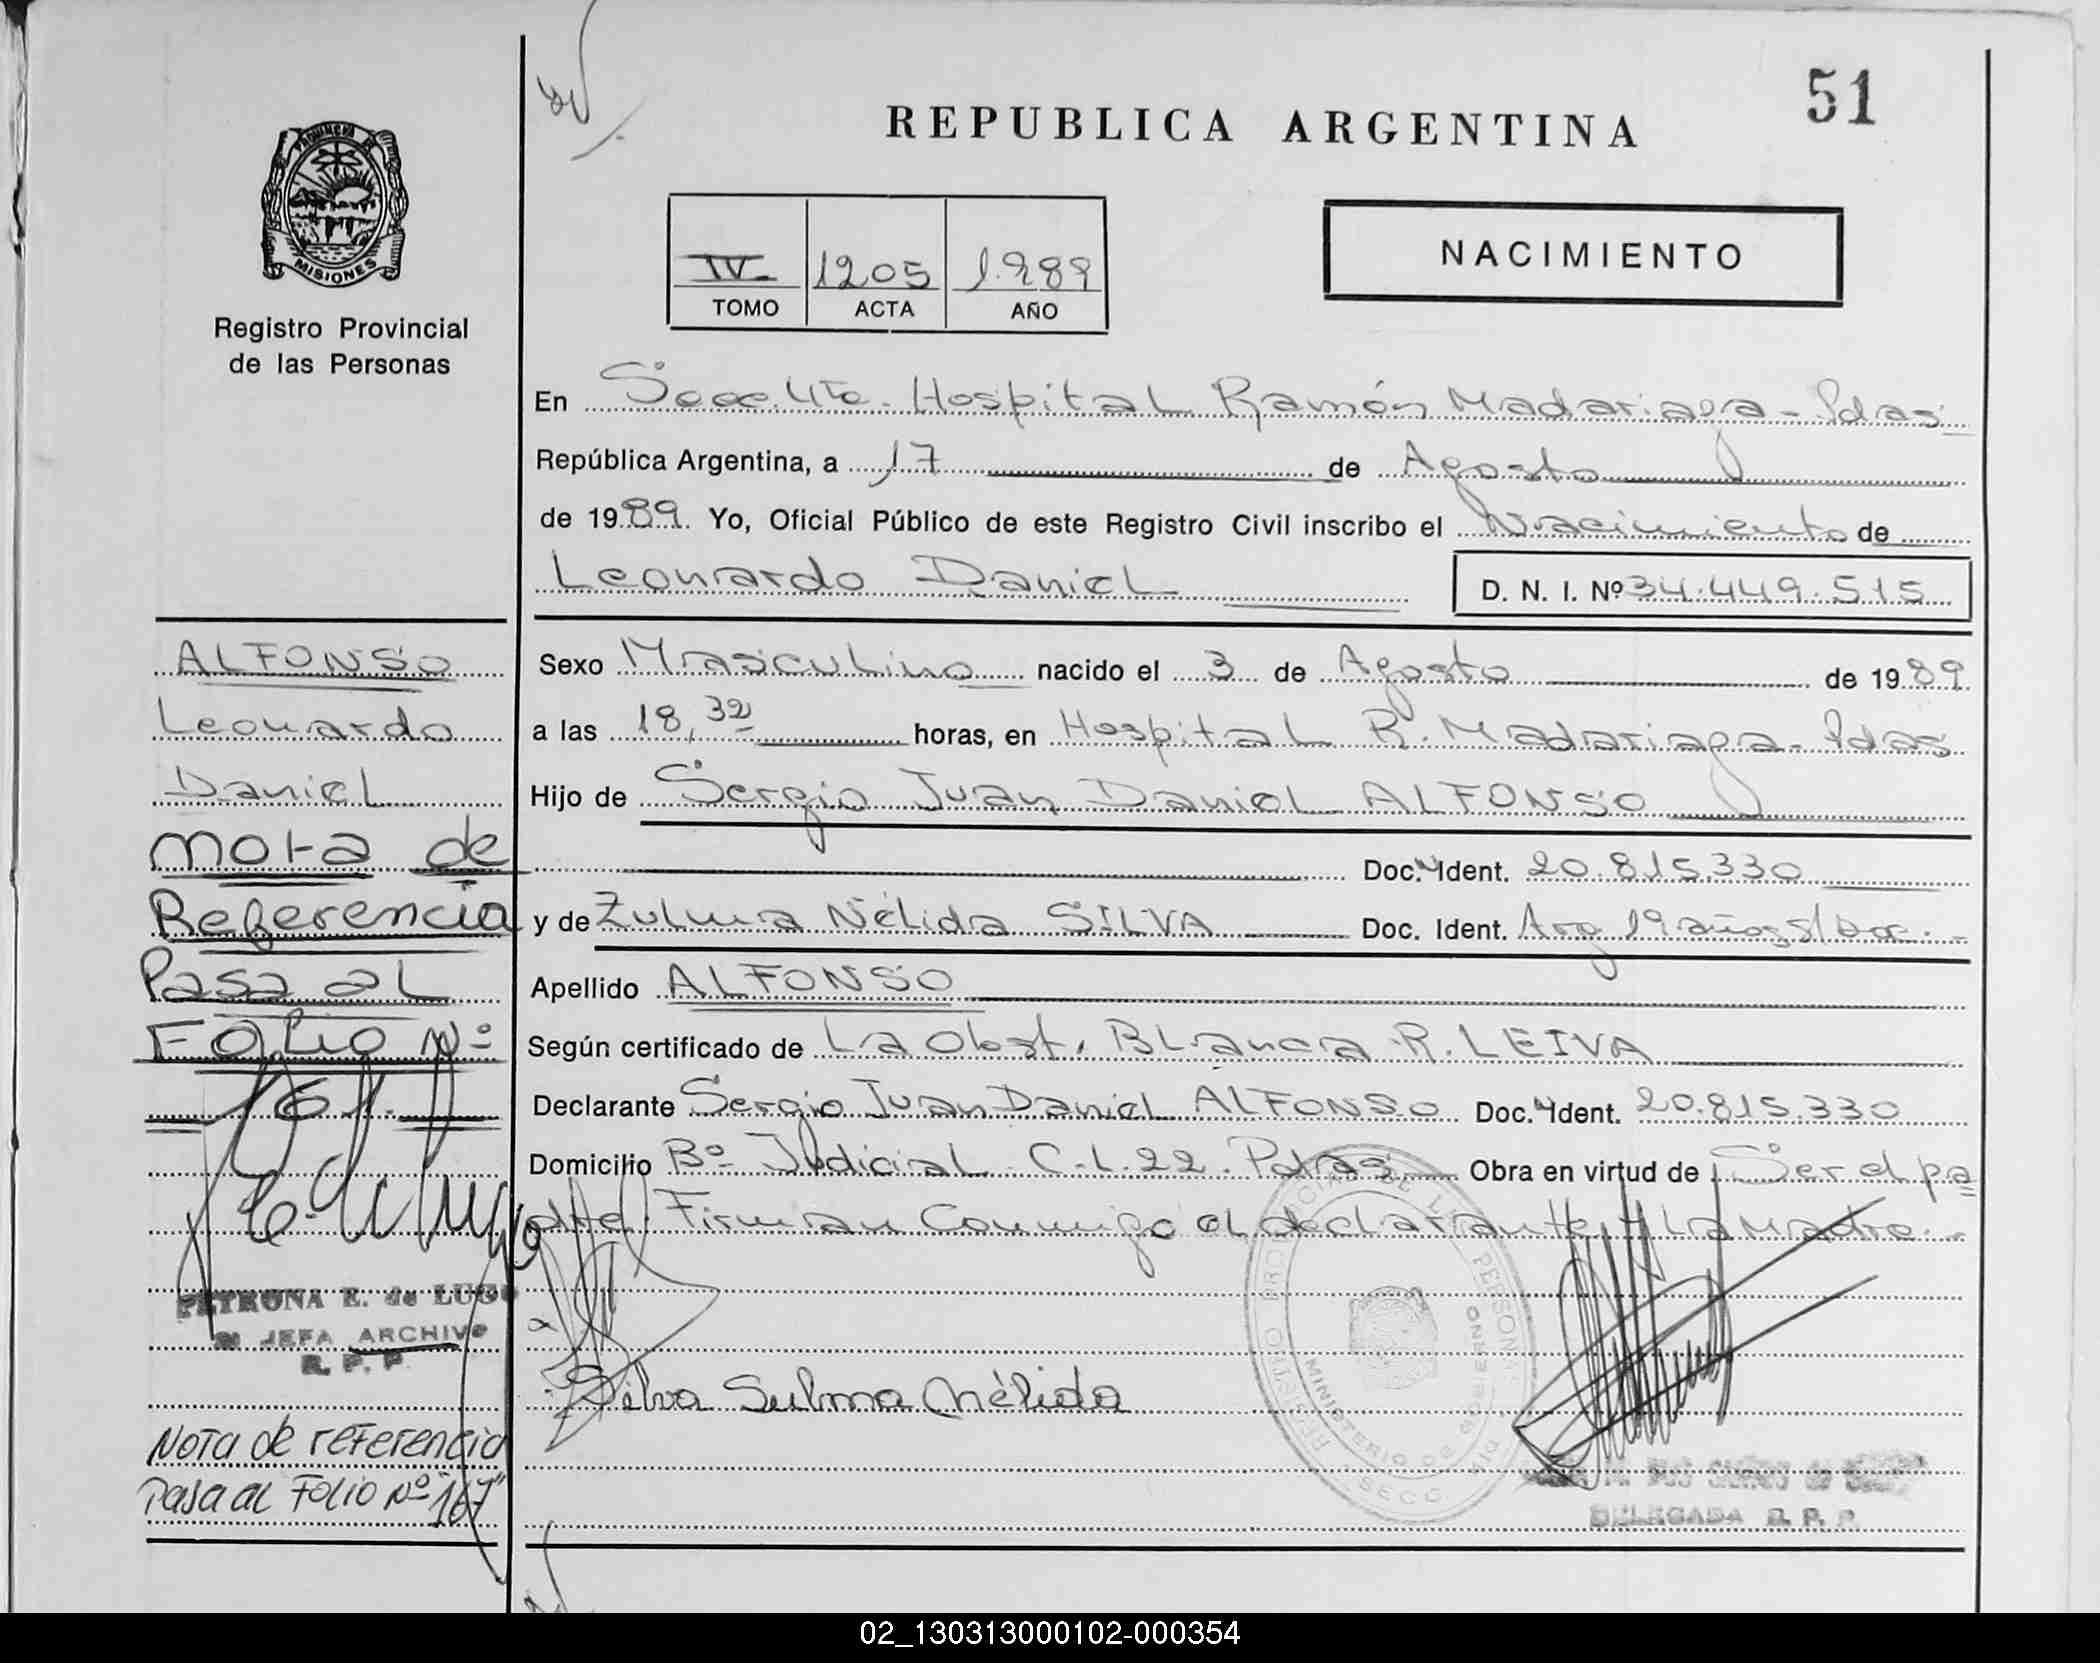 51
REPUBLICA ARGENTINA
PROVINCIA
MISIONES
Registro Provincial
de las Personas
IV 1205 1.989
TOMO ACTA AÑO
NACIMIENTO
En Secc. 4ta. Hospital Ramón Madariaga - Pdas
República Argentina, a 17 de Agosto
de 1989. Yo, Oficial Público de este Registro Civil inscribo el Nacimiento de
Leonardo Daniel D. N. I. Nº 34.449.515
Sexo Masculino nacido el 3 de Agosto de 1989
a las 18,32 horas, en Hospital R. Madariaga - Pdas
Hijo de Sergio Juan Daniel ALFONSO
Doc. Ident. 20.815.330
y de Zulma Nélida SILVA Doc. Ident. Arg 19 años s/Doc.-
Apellido ALFONSO
Según certificado de La Obst. Blanca R. LEIVA
Declarante Sergio Juan Daniel ALFONSO Doc. Ident. 20.815.330
Domicilio Bº Judicial C-L.22. Pdas Obra en virtud de Ser el pa
dre. Firman Conmigo el declarante y La Madre.-
Silva Sulma Nélida
REGISTRO PROVINCIAL DE LAS PERSONAS
MINISTERIO DE GOBIERNO
SECC
DELEGADA R. P. P.
ALFONSO
Leonardo
Daniel
Nota de
Referencia
Pasa al
Folio Nº
161
PETRONA E. de LUGO
JEFA ARCHIVO
R. P. P
Nota de referencia
Pasa al Folio Nº "167"
02_130313000102-000354